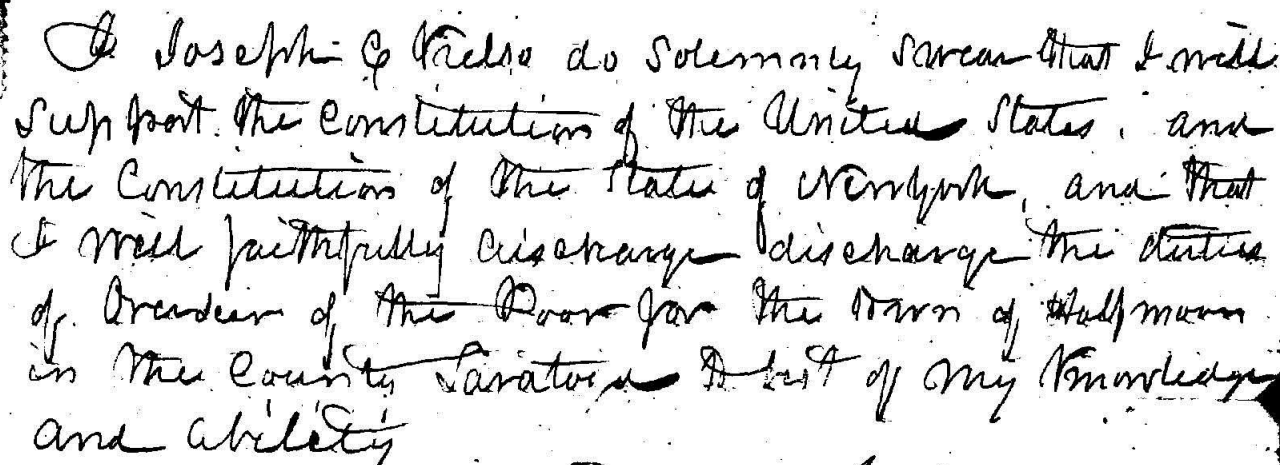 I Joseph C do Solemnly Swear that I will
Support the Constitution of the United States, and
the Constitution of the State of New York, and that
I will faithfully discharge discharge the duties
of Overseer of the Poor for the Town of Halfmoon
in the County Saratoga to best of my Knowledge
and ability